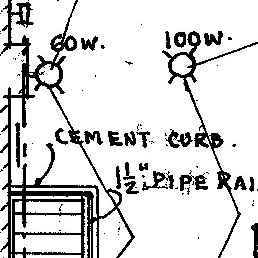 60W. 100W.
CEMENT CURB.
1½" PIPE RAI